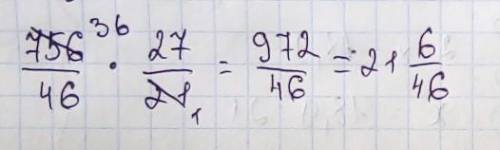 756/46 36 · 27/21 1 = 972/46 = 21 6/46